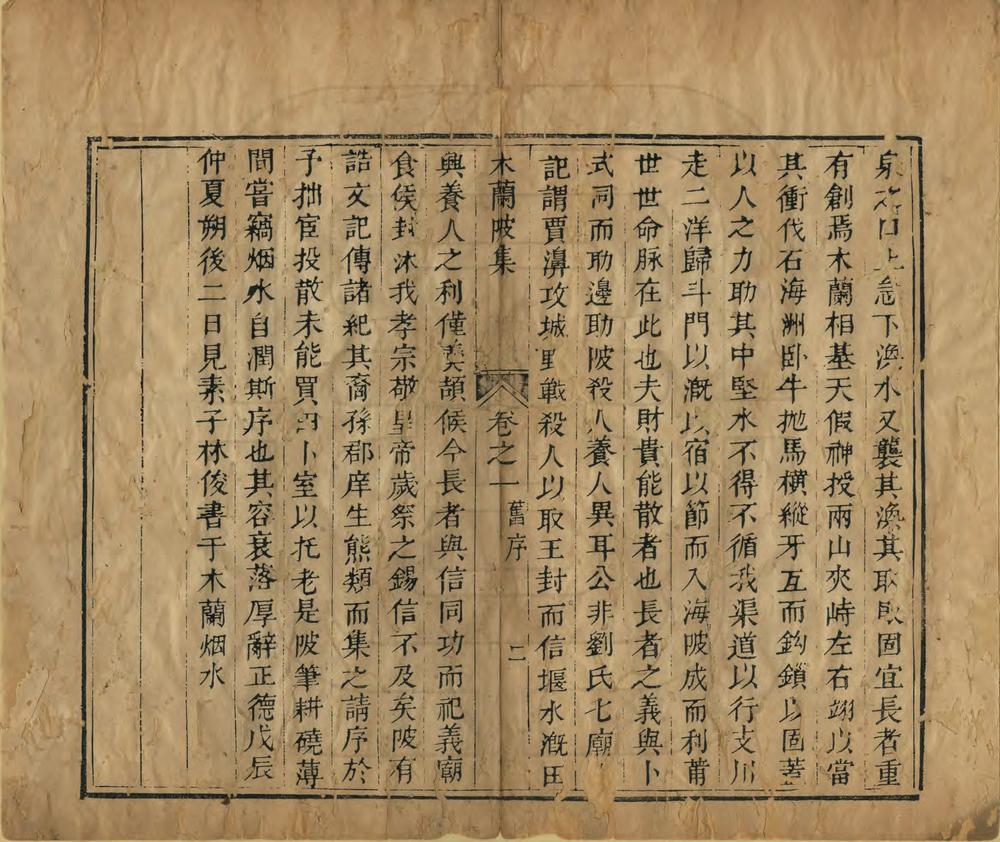 泉谷口上急下渙水又襲其渙其取敗固宜長者重
有創焉木蘭相基天假神授兩山夾峙左右翊以當
其衝伐石海洲臥牛拋馬橫縱牙互而鈎鎖以固
以人之力助其中堅水不得不循我渠道以行支川
走二洋歸斗門以漑以宿以節而入海陂成而利莆
世世命脉在此也夫財貴能散者也長者之義與卜
式同而助邊助陂殺人養人異耳公非劉氏七廟
記謂賈濞攻城野戰殺人以取王封而信堰水漑田
木蘭陂集 卷之一 舊序 二
興養人之利僅羮頡侯今長者與信同功而祀義廟
食侯封沐我孝宗敬皇帝歲祭之錫信不及矣陂有
誥文記傳諸紀其裔孫郡庠生熊類而集之請序於
予拙宦投散未能買田卜室以托老是陂筆耕磽薄
間嘗竊烟水自潤斯序也其容衰落厚辭正德戊辰
仲夏朔後二日見素子林俊書于木蘭烟水